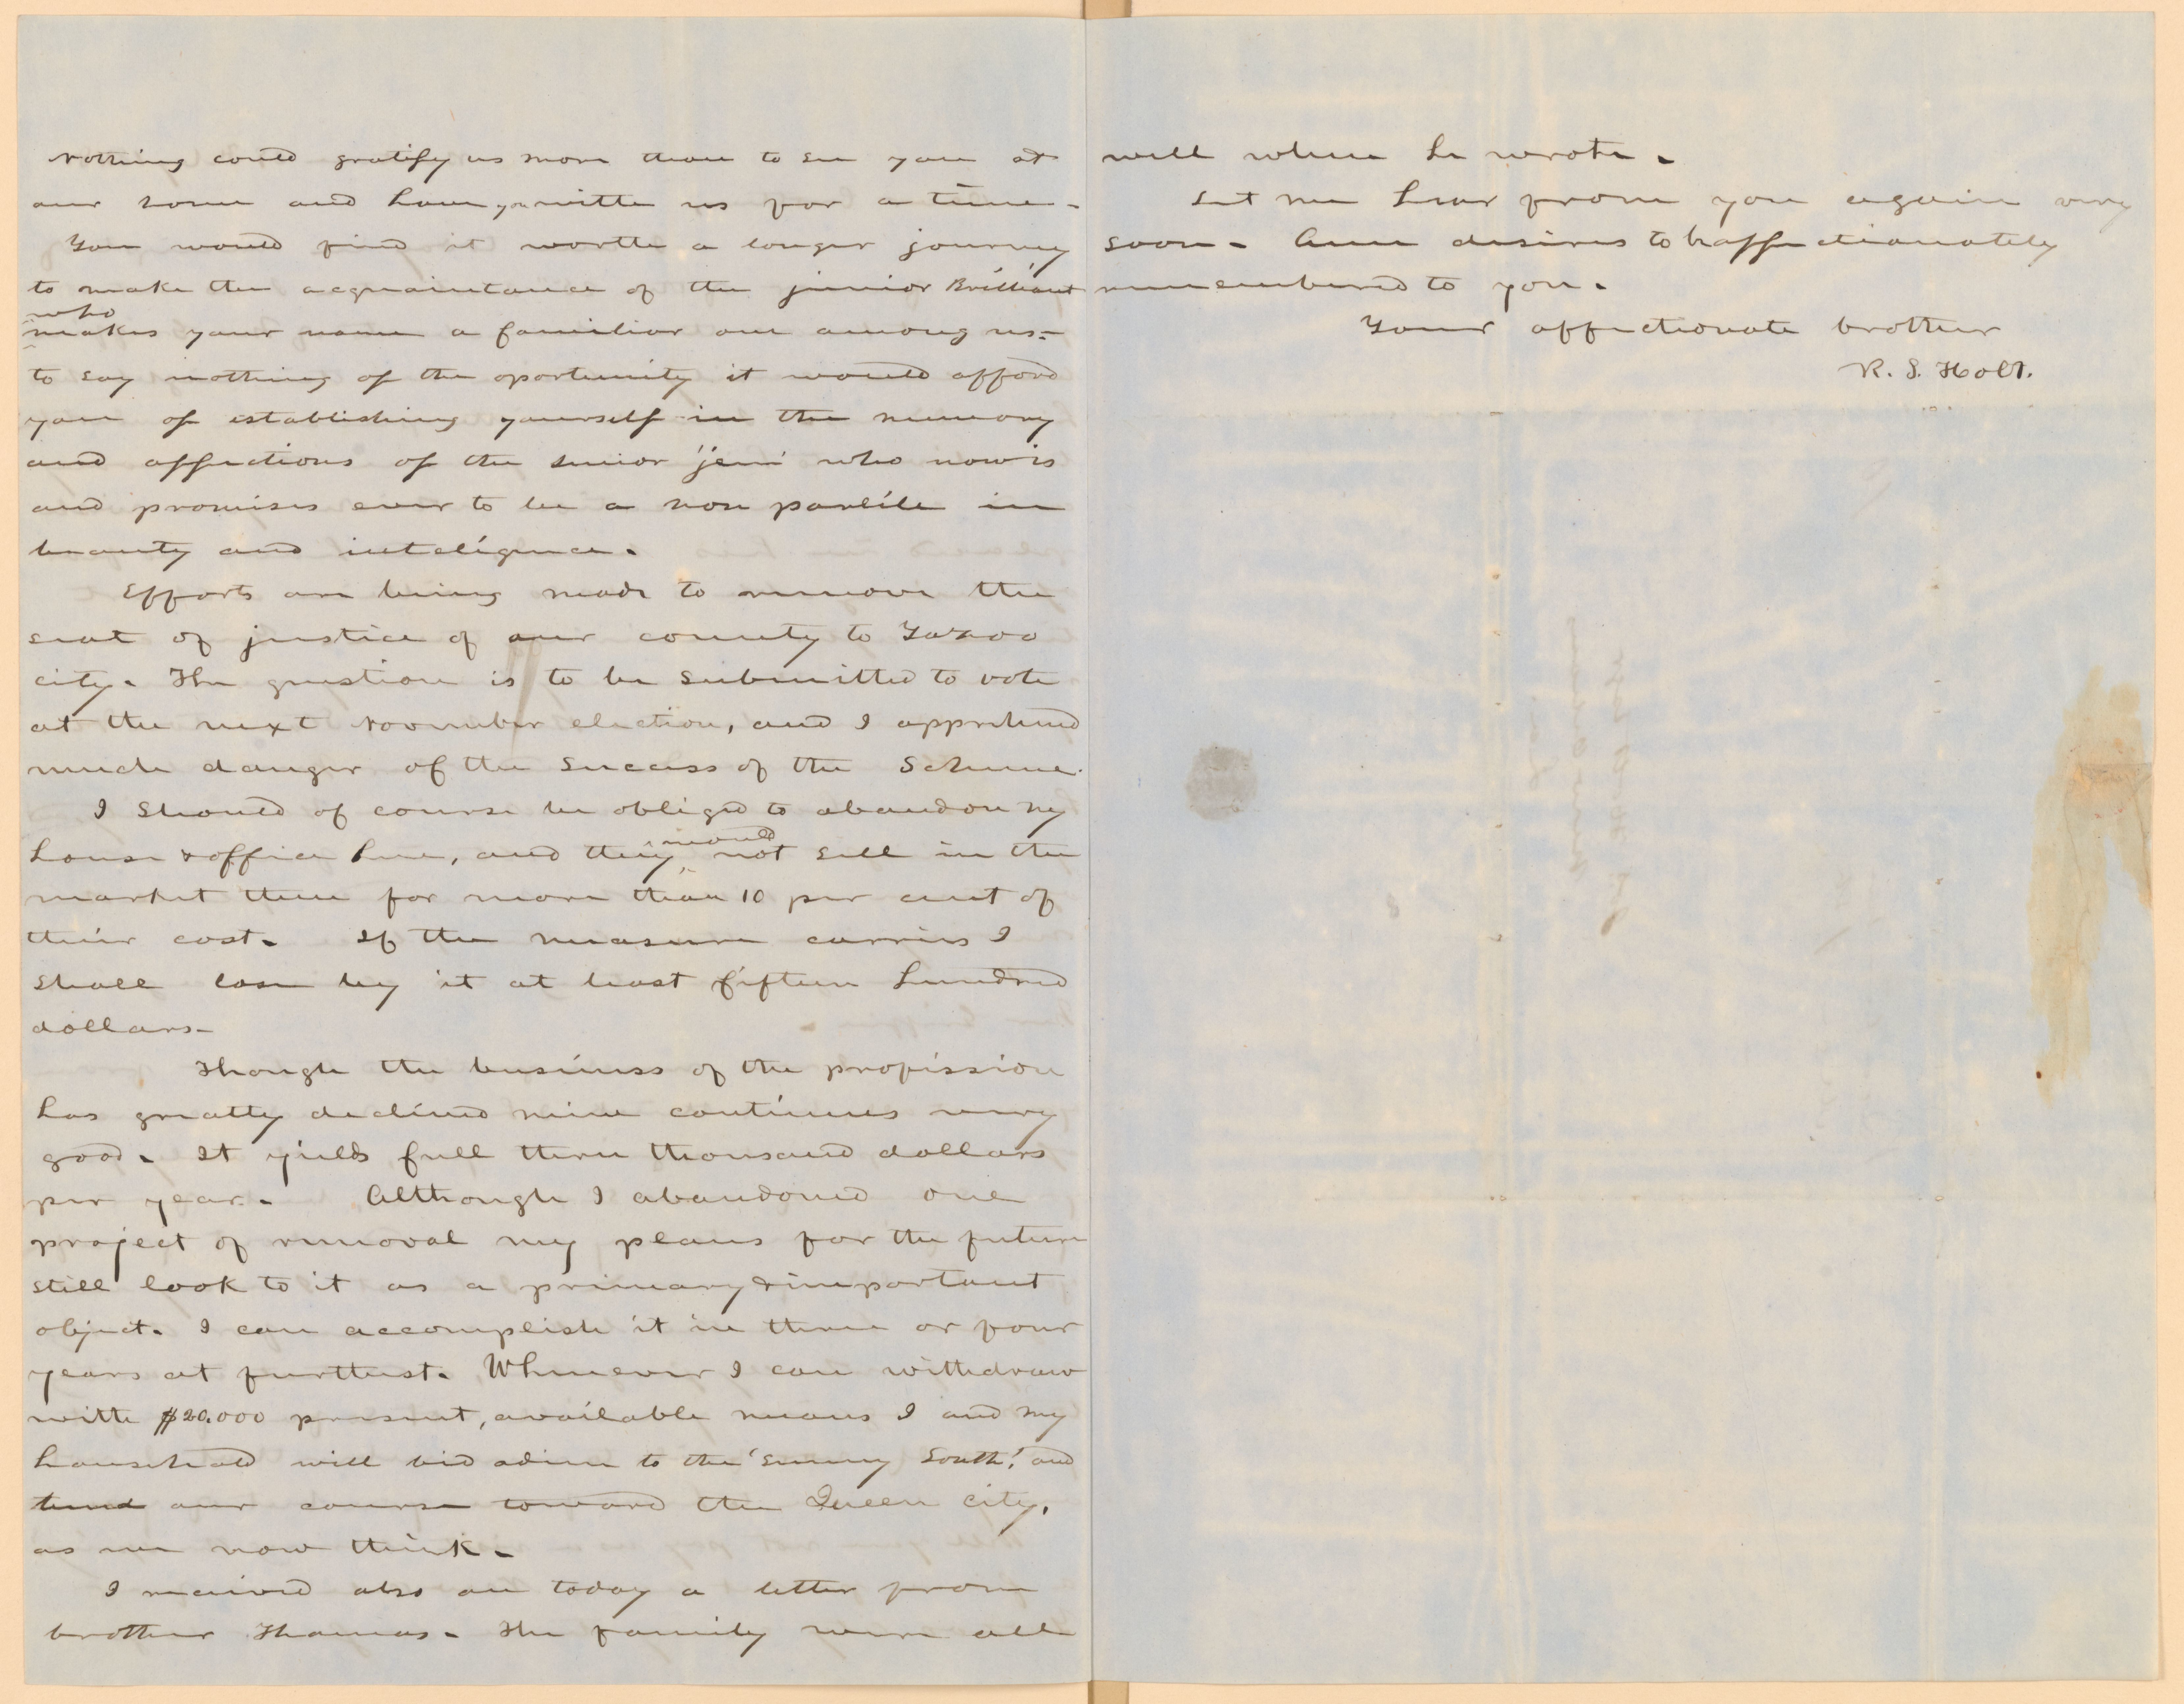 Nothing could gratify us more than to see you at
our home and have you with us for a time.
You would find it worth a longer journey
to make the acquaintance of the junior Brilliant
who
makes your name a familiar one among us—
to say nothing of the oportunity it would afford
you of establishing yourself in the memory
and affections of the senior 'jem' who now is
and promises ever to be a non parlile in
beauty and inteligence.
Efforts are being made to remove the
seat of justice of our county to Yazoo
city. The question is to be submitted to vote
at the next November election, and I apprehend
much danger of the success of the scheme.
I should of course be obliged to abandon my
would
house & office here, and they not sell in the
market then for more than 10 per cent of
their cost. If the measure carries I
shall lose by it at least fifteen hundred
dollars—
Though the business of the profession
has greatly declined mine continues very
good. It yields full three thousand dollars
per year. Although I abandoned one
project of removal my plans for the future
still look to it as a primary & important
object. I can accomplish it in three or four
years at furthest. Whenever I can withdraw
with $20.000 present, available means I and my
household will bid adieu to the 'sunny South' and
bend our course toward the Queen city,
as we now think.
I received also on today a letter from
brother Thomas. The family were all
will when he wrote.
Let me hear from you again very
soon. Ann desires to be affectionately
remembered to you.
Your affectionate brother
R. S. Holt.